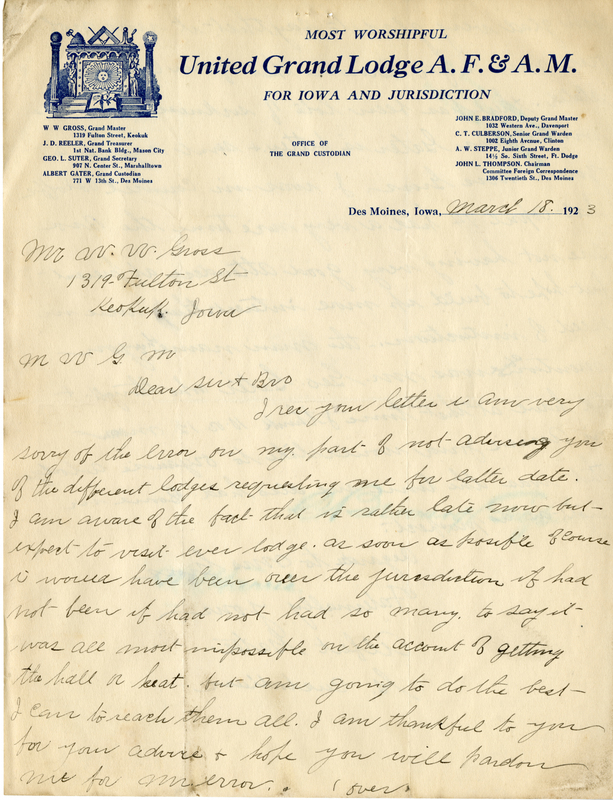 MOST WORSHIPFUL
United Grand Lodge A. F. & A. M.
FOR IOWA AND JURISDICTION
W W GROSS, Grand Master
1319 Fulton Street, Keokuk
J. D. REELER, Grand Treasurer
1st Nat. Bank Bldg., Mason City
GEO. L. SUTER, Grand Secretary
907 N. Center St., Marshalltown
ALBERT GATER, Grand Custodian
771 W 13th St., Des Moines
OFFICE OF
THE GRAND CUSTODIAN
JOHN E. BRADFORD, Deputy Grand Master
1032 Western Ave., Davenport
C. T. CULBERSON, Senior Grand Warden
1002 Eighth Avenue, Clinton
A. W. STEPPE, Junior Grand Warden
14½ So. Sixth Street, Ft. Dodge
JOHN L. THOMPSON, Chairman
Committee Foreign Correspondence
1306 Twentieth St., Des Moines
Des Moines, Iowa, March 18. 1923
Mr W. W. Gross
1319 Fulton St
Keokuk. Iowa
M W G M
Dear Sir & Bro
I rec your letter i am very
sorry of the error on my part of not advising you
of the different lodges requesting me for latter date.
I am aware of the fact that is rather late now but
expect to visit ever lodge. as soon as posible of course
i would have been over the jurisdiction if had
not been if had not had so many. to say it
was all most impossible on the account of getting
the hall or heat. but am going to do the best
I can to reach them all. I am thankful to you
for your advice & hope you will pardon
me for my error. (over)